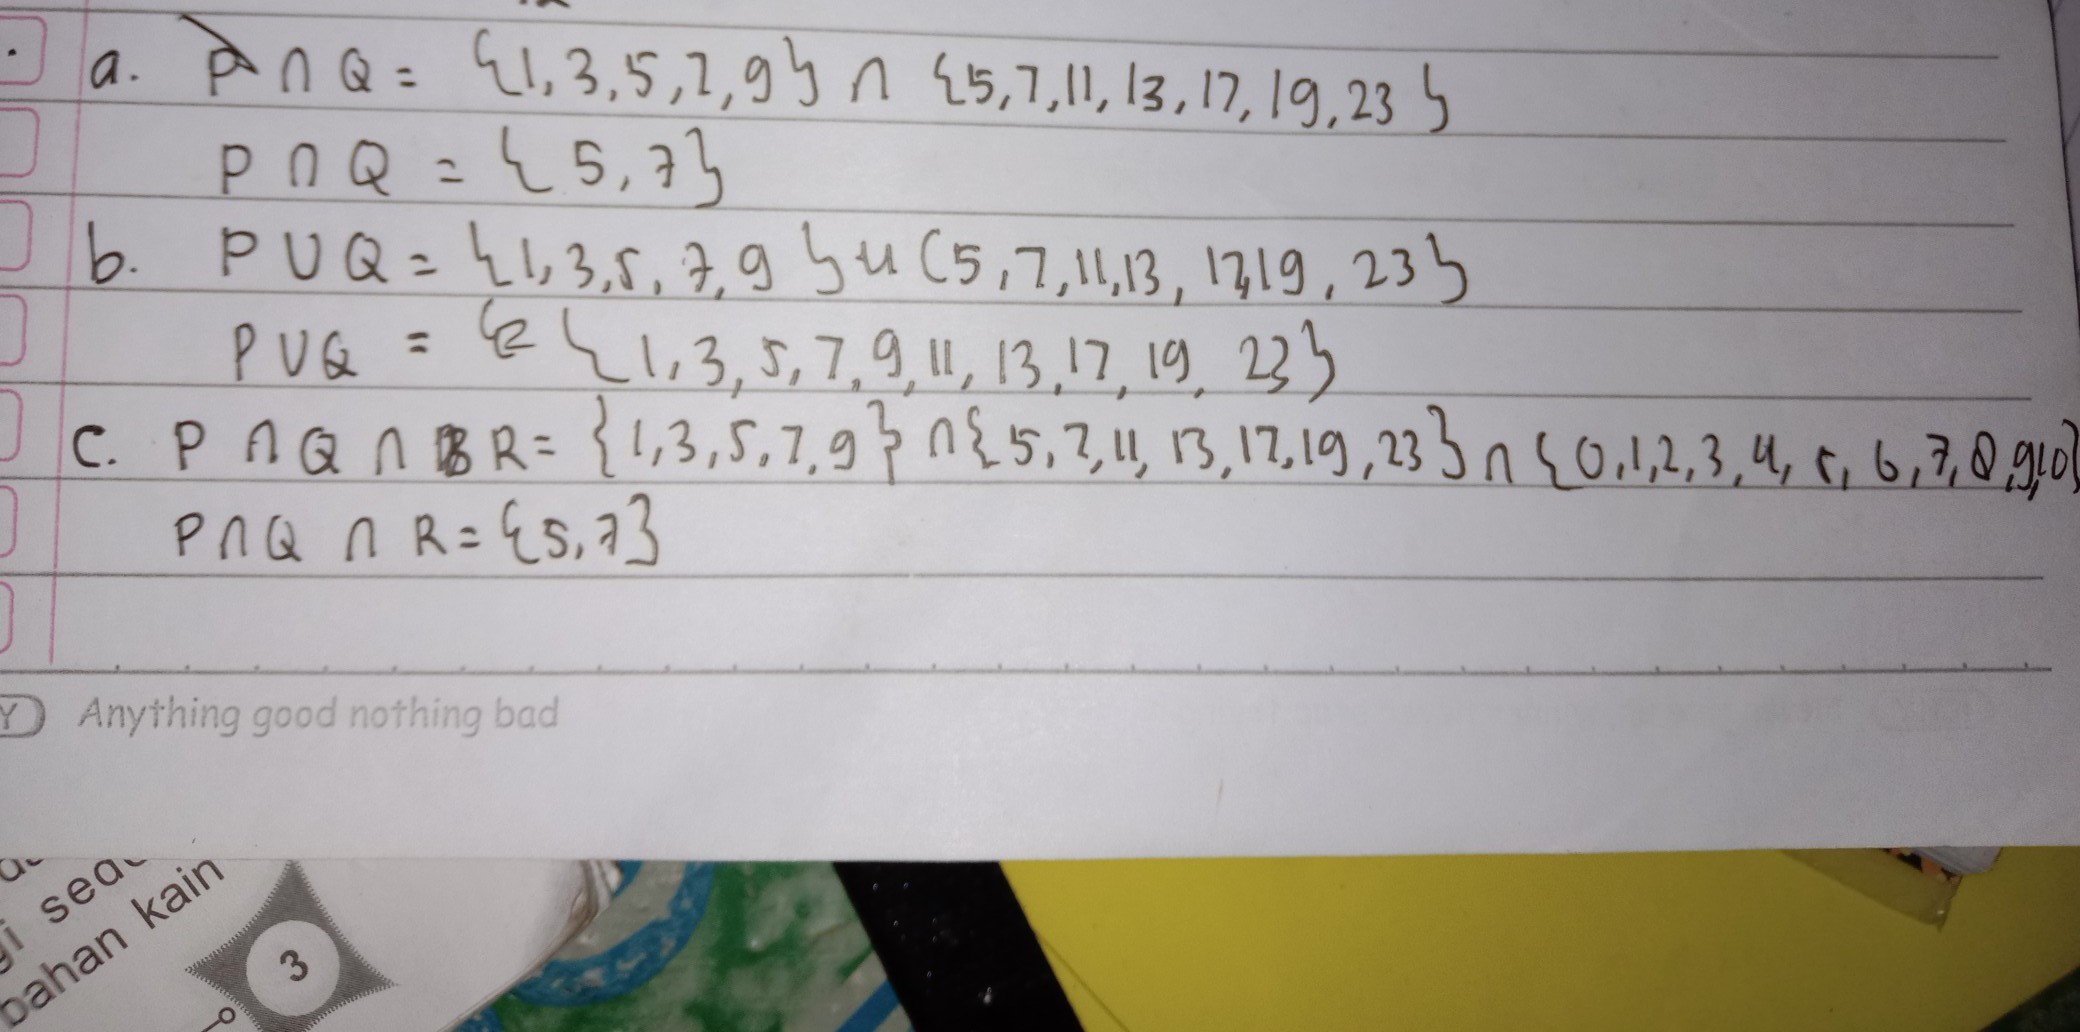 a. P ∩ Q = {1, 3, 5, 7, 9} ∩ {5, 7, 11, 13, 17, 19, 23}
P ∩ Q = {5, 7}
b. P ∪ Q = {1, 3, 5, 7, 9} ∪ (5, 7, 11, 13, 17, 19, 23}
P ∪ Q = { 1, 3, 5, 7, 9, 11, 13, 17, 19, 23}
c. P ∩ Q ∩ R = {1, 3, 5, 7, 9} ∩ {5, 7, 11, 13, 17, 19, 23} ∩ {0, 1, 2, 3, 4, 5, 6, 7, 8, 9, 10}
P ∩ Q ∩ R = {5, 7}
Anything good nothing bad
bahan kain
3